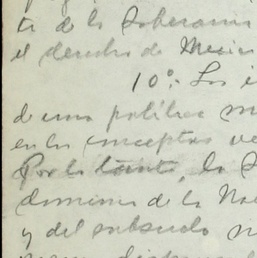 te de la Soberanía
el derecho de Mexico
10º. Los i
de una política
en los conceptos ve
Por lo tanto, la S
dominio de la Na
y del subsuelo